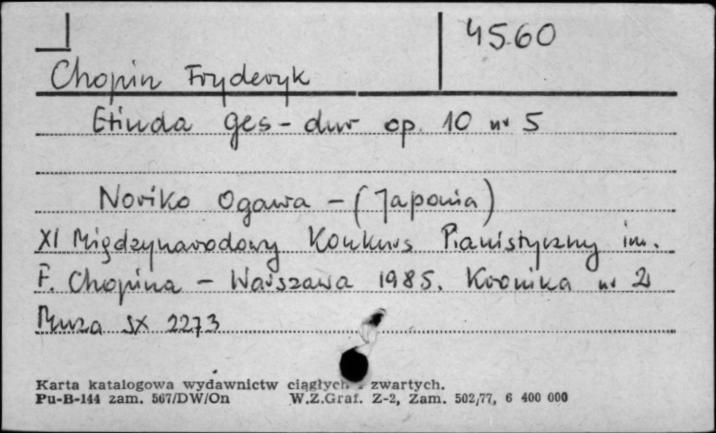 4560
Chopin Fryderyk
Etiuda ges-dur op. 10 nr 5
Noriko Ogawa - (Japonia)
XI Międzynarodowy Konkurs Pianistyczny im.
F. Chopina - Warszawa 1985. Kronika nr 2
Muza SX 2273
Karta katalogowa wydawnictw ciągłych i zwartych.
Pu-B-144 zam. 567/DW/On W.Z.Graf. Z-2, Zam. 502/77, 6 400 000